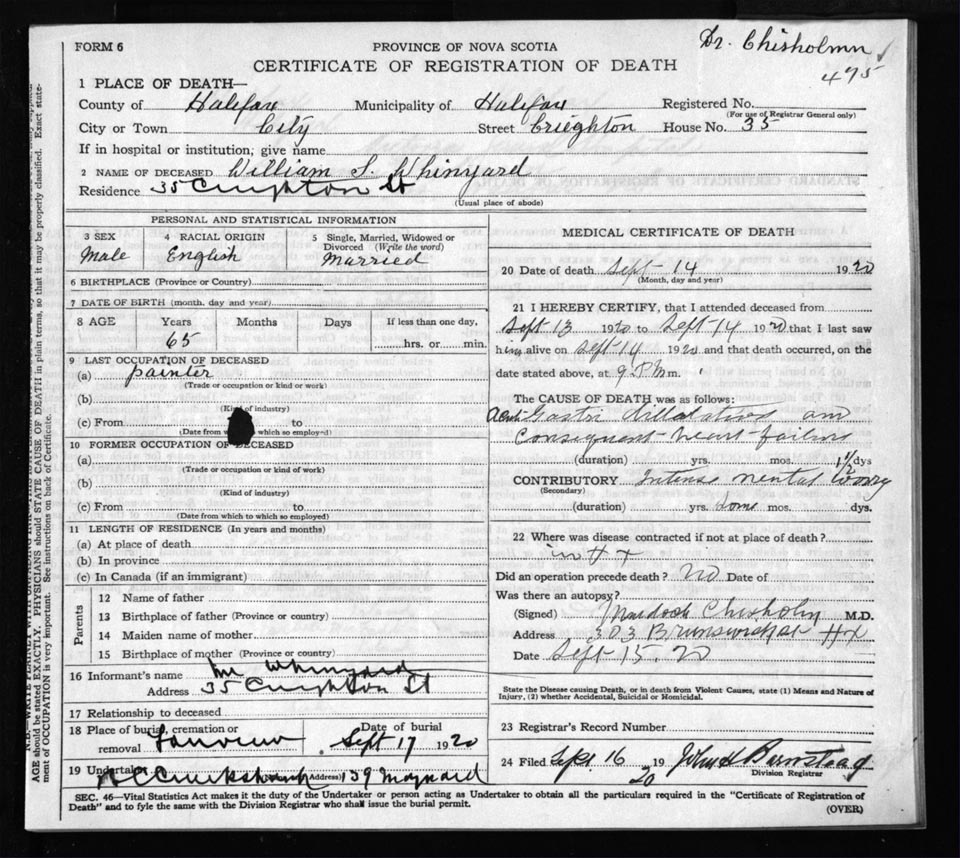 FORM 6
PROVINCE OF NOVA SCOTIA
Dr. Chisholmn
CERTIFICATE OF REGISTRATION OF DEATH
475
1 PLACE OF DEATH—
County of Halifax Municipality of Halifax Registered No.
(For use of Registrar General only)
City or Town City Street Crieghton House No. 35
If in hospital or institution, give name
2 NAME OF DECEASED William S. Whinyard
Residence 35 Creighton St
(Usual place of abode)
PERSONAL AND STATISTICAL INFORMATION
3 SEX 4 RACIAL ORIGIN 5 Single, Married, Widowed or
Divorced (Write the word)
Male English Married
6 BIRTHPLACE (Province or Country)
7 DATE OF BIRTH (month, day and year)
8 AGE Years Months Days If less than one day,
65 hrs. or min.
9 LAST OCCUPATION OF DECEASED
(a) painter
(Trade or occupation or kind or work)
(b)
(Kind of industry)
(c) From to
(Date from which so employed)
10 FORMER OCCUPATION OF DECEASED
(a)
(Trade or occupation or kind of work)
(b)
(Kind of industry)
(c) From to
(Date from which to which so employed)
11 LENGTH OF RESIDENCE (In years and months)
(a) At place of death
(b) In province
(c) In Canada (if an immigrant)
Parents
12 Name of father
13 Birthplace of father (Province or country)
14 Maiden name of mother
15 Birthplace of mother (Province or country)
16 Informant's name Mr Whinyard
Address 35 Creighton St
17 Relationship to deceased
18 Place of burial, cremation or Date of burial
removal Fairview Sept 17 1920
19 Undertaker (Address) 139 Maynard
MEDICAL CERTIFICATE OF DEATH
20 Date of death Sept 14 1920
(Month, day and year)
21 I HEREBY CERTIFY, that I attended deceased from
Sept 13 1920 to Sept 14 1920 that I last saw
him alive on Sept 14 1920 and that death occurred, on the
date stated above, at 9 P.M m.
The CAUSE OF DEATH was as follows:
Gastric dillatation
Consequent heart failure
(duration) yrs. mos. 1 1/2 dys
CONTRIBUTORY Intense mental worry
(Secondary)
(duration) yrs. some mos. dys.
22 Where was disease contracted if not at place of death?
in Hx
Did an operation precede death? no Date of
Was there an autopsy?
(Signed) Murdoch Chisholm M.D.
Address 303 Brunswick st Hx
Date Sept 15. 20
State the Disease causing Death, or in death from Violent Causes, state (1) Means and Nature of
Injury, (2) whether Accidental, Suicidal or Homicidal.
23 Registrar's Record Number
24 Filed Sept 16 19 20 Barnstead
Division Registrar
SEC. 46—Vital Statistics Act makes it the duty of the Undertaker or person acting as Undertaker to obtain all the particulars required in the "Certificate of Registration of
Death" and to fyle the same with the Division Registrar who shall issue the burial permit.
(OVER)
AGE should be stated EXACTLY. PHYSICIANS should STATE CAUSE OF DEATH in plain terms, so that it may be properly classified. Exact state-
ment of OCCUPATION is very important. See instructions on back of Certificate.